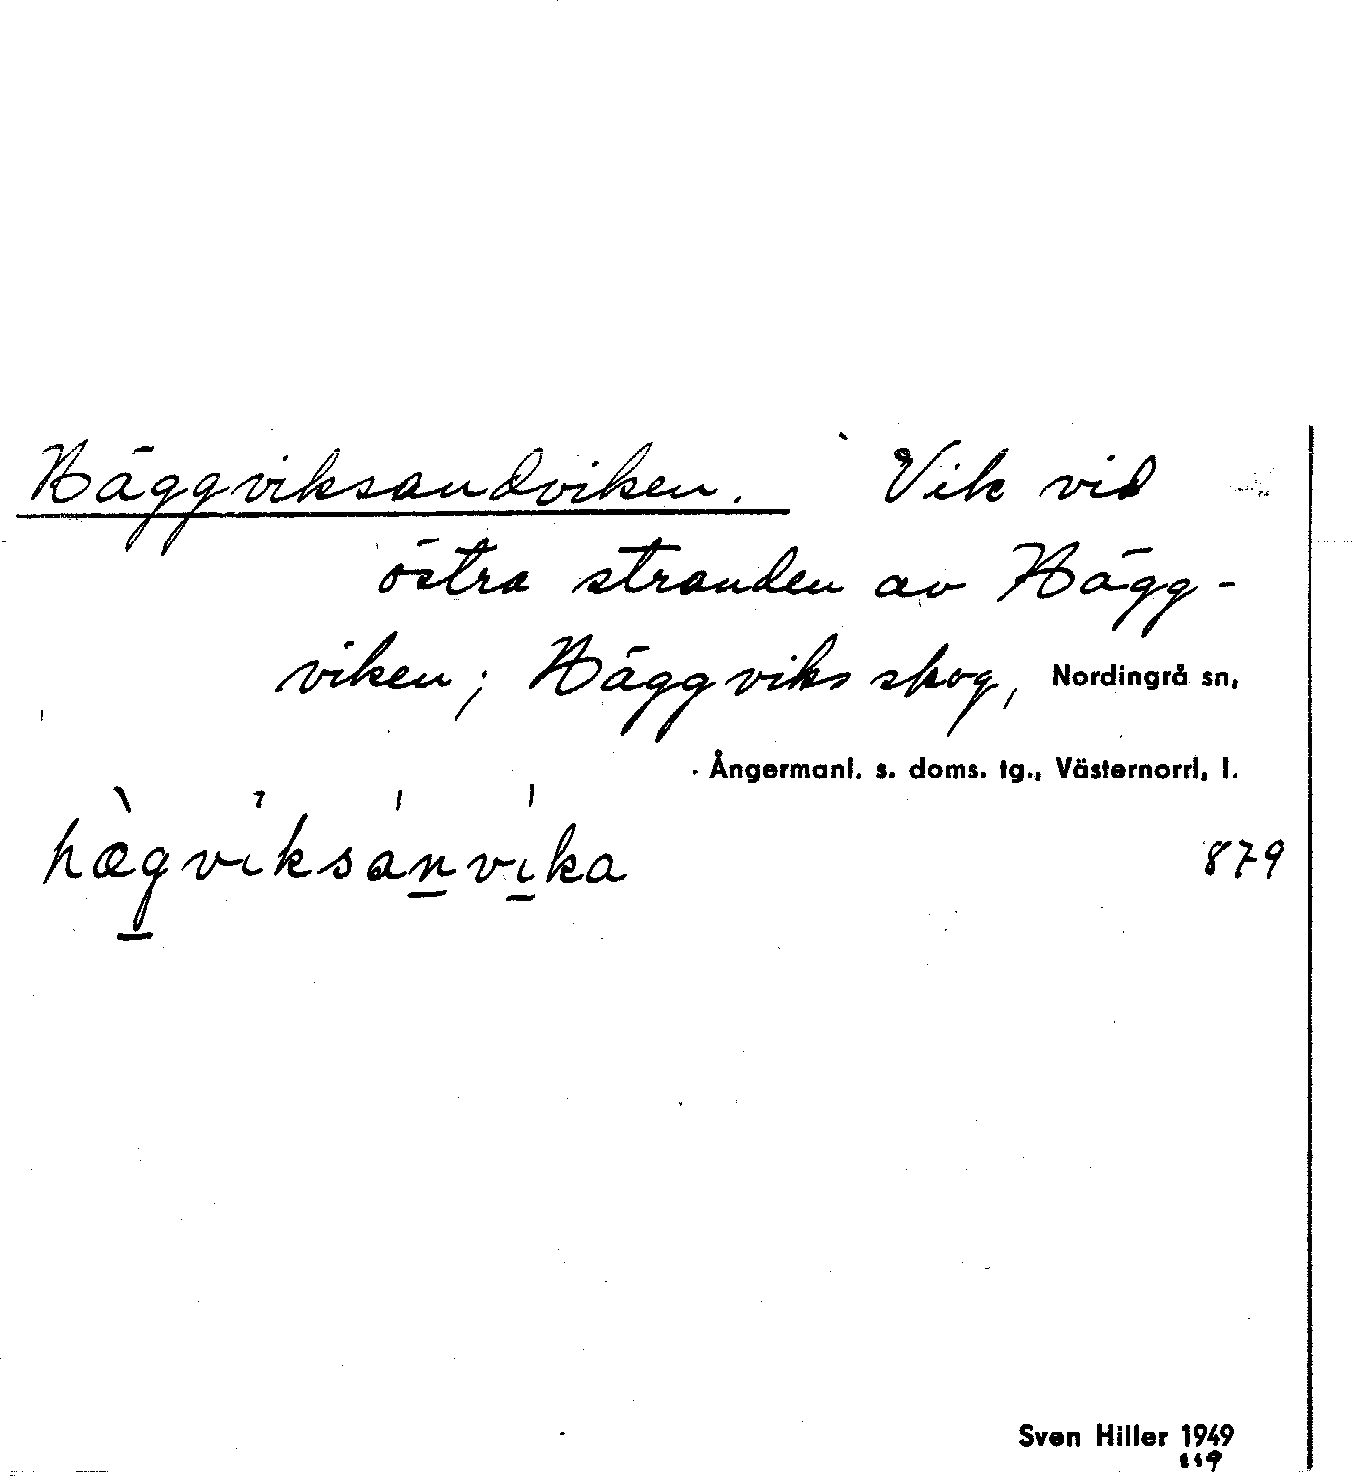 Häggviksandviken. Vik vid
östra stranden av Hägg-
viken; Häggviks skog, Nordingrå sn,
Ångermanl. s. doms. tg., Västernorrl. l.
hægviksanvika 879
Sven Hiller 1949